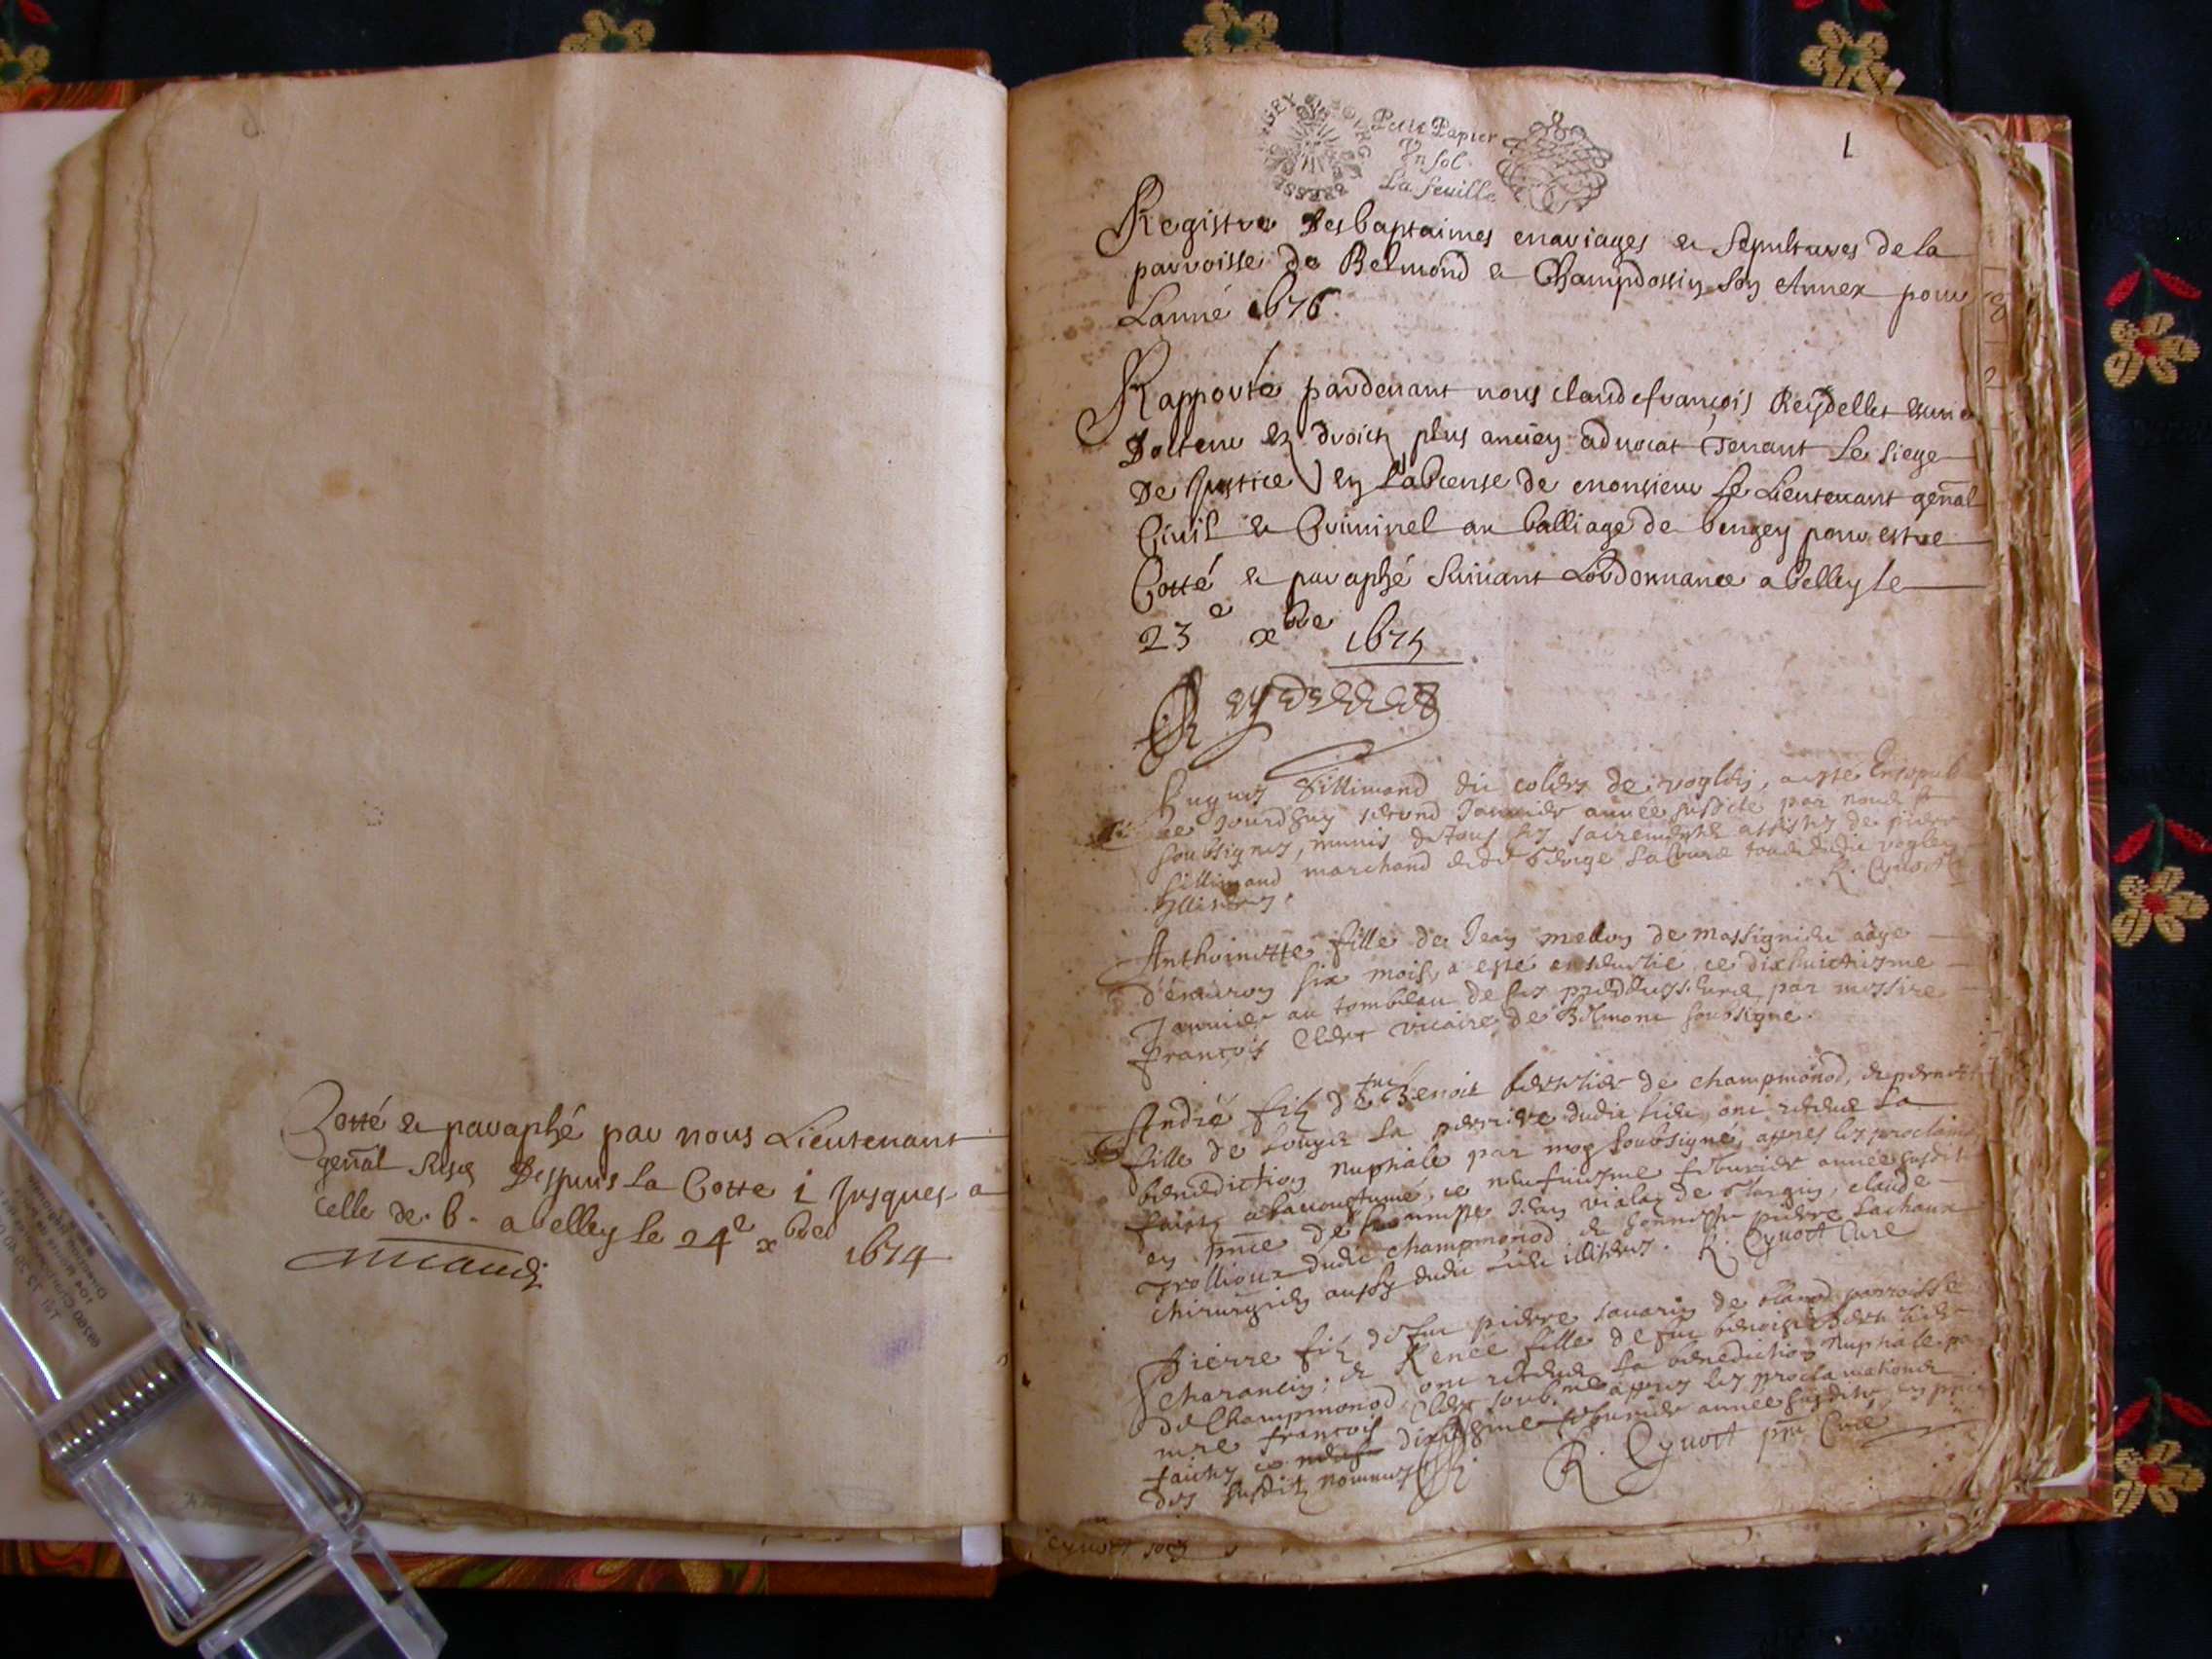 Cotté & paraphé par nous Lieutenant
genãl susd. Despuis la Cotte 1 Jusques a
celle de .6. a belley le 24e xbre 1674
BRESSE
Petit Papier
Vn sol
La feuille
1
Registre des baptaimes mariages & sepultures de la
parroisse de Belmond & Champdossin son Annex pour
Lanné 1676.
Rapporté pardevant nous claude françois Reydellet
Docteur ez droicts plus ancien advocat Tenant le siege
De Justice en Labcense de monsieur le Lieutenant genãl
Civil & Criminel au balliage de beugey pour estre
Cotté & paraphé suivant Lordonnance a belley le
23e xbre 1675
Reydellet
Hugues fillimand de voglen, a esté
ce jourdhuy second Janvier année susdite par nous
soubsignes, munis de tous les sacremens assistes de pierre
fillimand marchand dudit voglen
illiteres.
Anthoinette fille de Jean mellon de massignieu aage
d'environ six mois, a esté ensevelie, ce dixhuictiesme
Janvier au tombeau de ses predecesseurs par messire
françois Clerc vicaire de Belmont soubsigné.
André filz de feu Benoit de champmonod, & pernette
fille de la perriere dudit lieu, ont receue la
benediction nuptiale par moy soubsigné, apres les proclama
faites a laccoustumé, ce neufviesme febvrier année susdite
en pnce de Jean vialaz de claude
Trollioux dudit champmonod, & honneste pierre Lachaux
chirurgien aussy dudit lieu illiteres. R. Cynost Curé
Pierre filz de feu pierre savarin de parroisse
charancin; & Renée fille de feu benoist
de Champmonod, ont receue la benediction nuptiale par
mre françois Clerc soub.ne apres les proclamations
faites ce neuf dixiesme febvrier année susdite en pnce
des susdits nommes R. Cynost pnt Curé